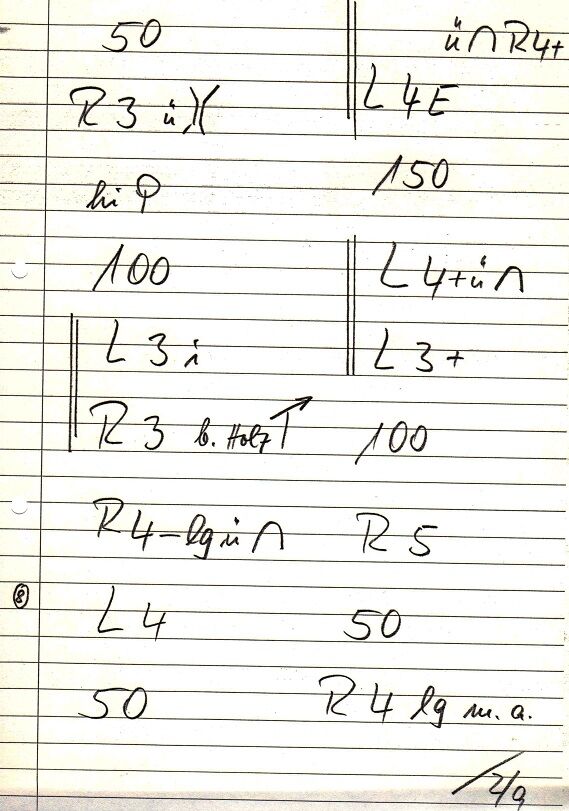 50
R 3 ü )(
hi
100
L 3 i
R 3 b. Holz ↗
R 4 – lg ü ∩
⑧
L 4
50
ü ∩ R4+
L 4 E
150
L 4 + ü ∩
L 3 +
100
R 5
50
R 4 lg m. a.
2/9